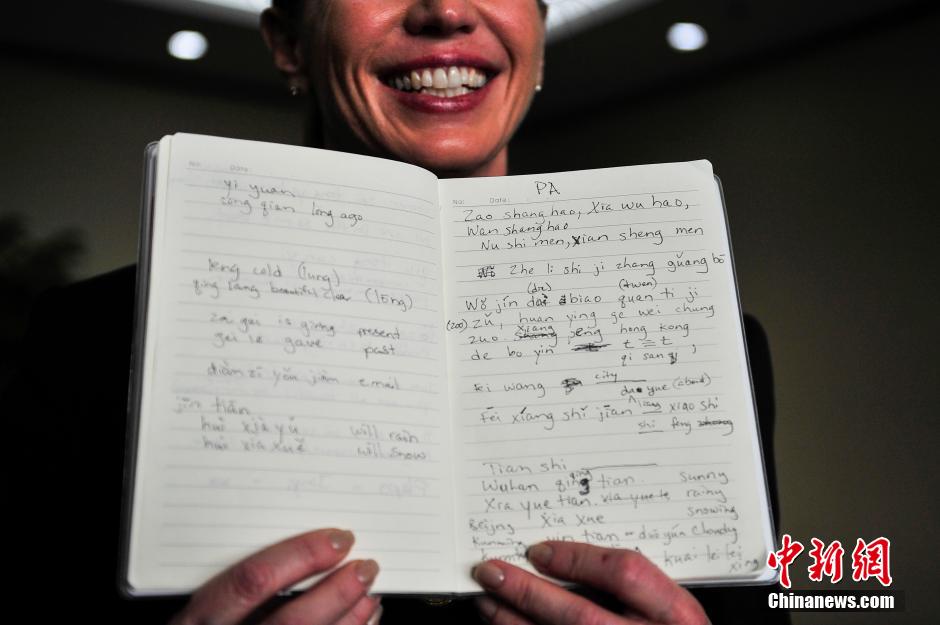 No: Date
yi yuan
cong qian long ago
leng cold (lung)
qing lang beautiful clear (lēng)
za gei is giving present
gei le gave past
diàn zǐ yóu jiàn email
jīn tiān
huì xià yǔ will rain
huì xià xuě will snow
No: Date:
PA
Zao shang hao, Xia wu hao,
Wan shang hao
Nu shi men, xian sheng men
Zhe li shi ji zhang guǎng bō
(twen)
Wǒ jín dài biao quan ti ji
(zoo) zǔ, huan ying ge wei chung
zuo xiang peng hong kong
de bo yin 七 三 七
qi san q ;
fei wang city
da yue (about)
Fēi xíang shí jiān liang xiao shi
shi feng
Tian shi
qing
Wuhan qing tian. sunny
Xra yue tian. xia yue te rainy
Beijng Xia xue snowing
Kunming yin tian - duō yún Cloudy
kuai le fei
xing
中新网
Chinanews.com